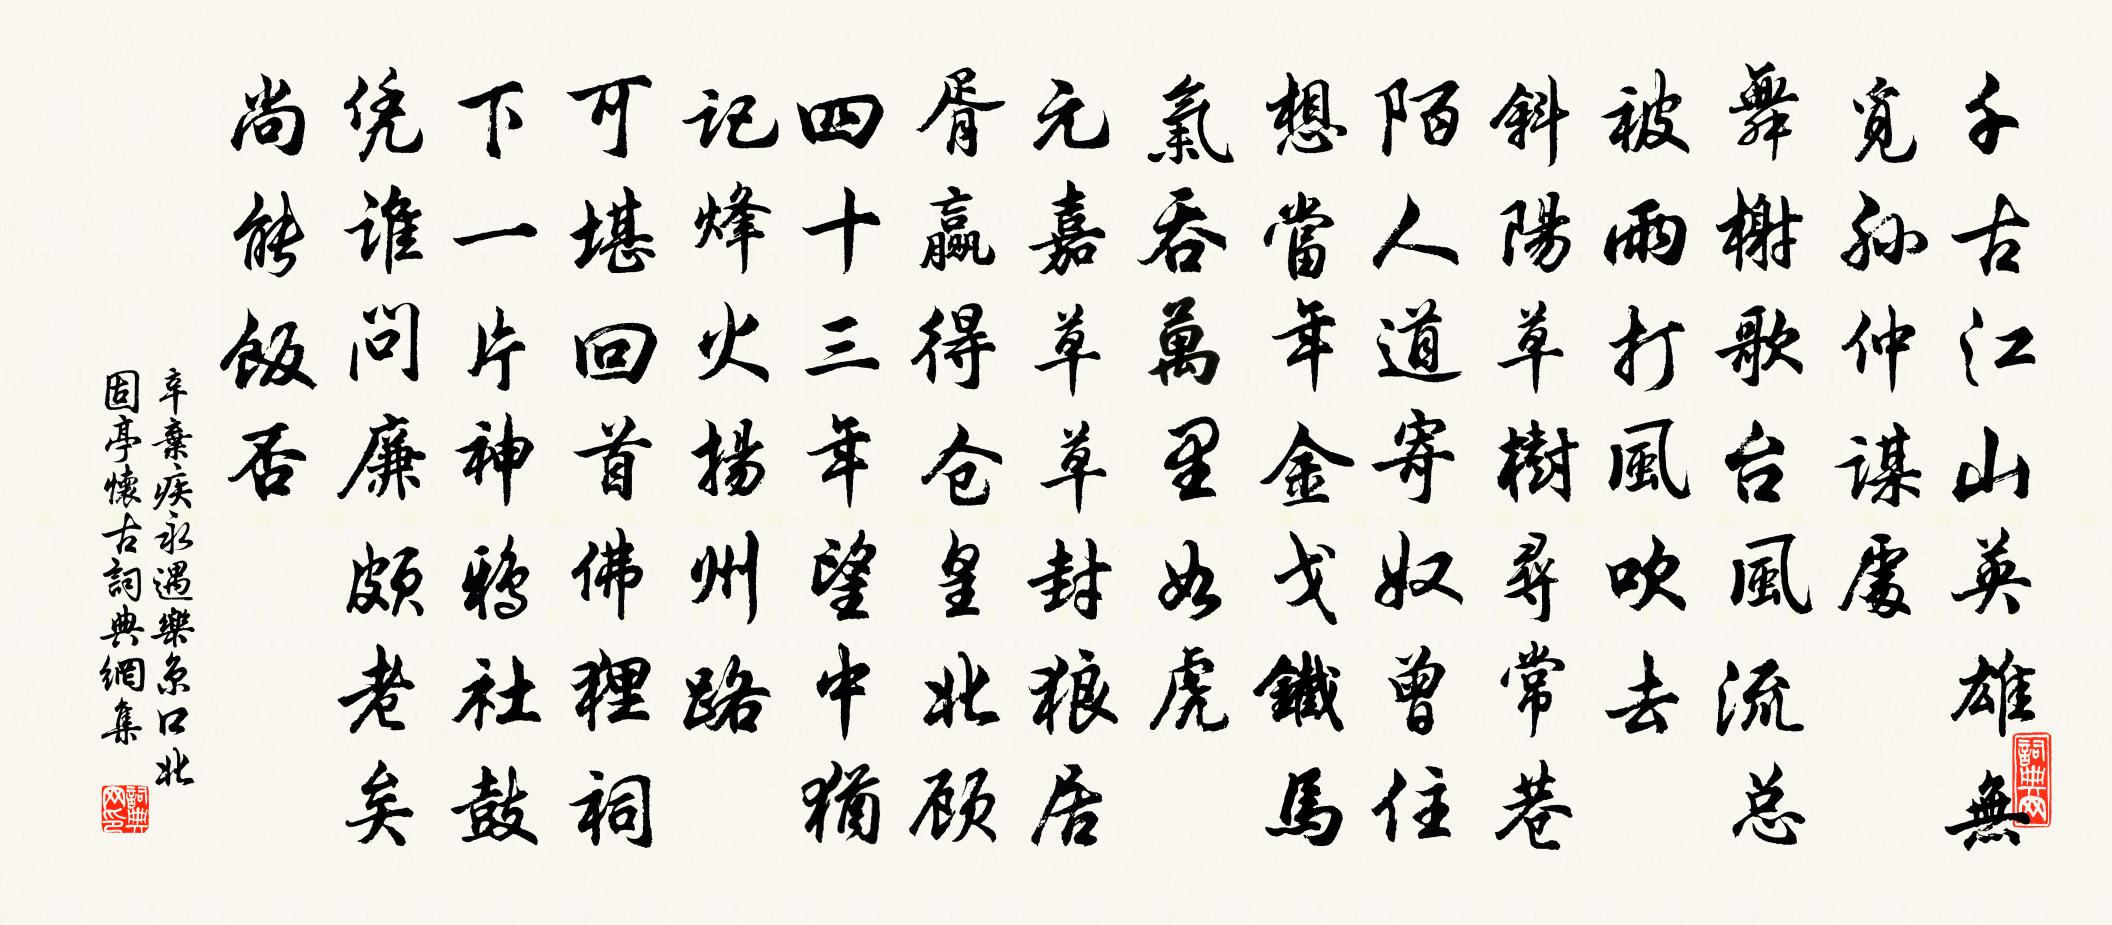 千古江山英雄無
覓孙仲謀處
舞榭歌台風流总
被雨打風吹去
斜陽草樹尋常巷
陌人道寄奴曾住
想當年金戈鐵馬
氣吞萬里如虎
元嘉草草封狼居
胥贏得仓皇北顾
四十三年望中猶
记烽火揚州路
可堪回首佛狸祠
下一片神鸦社鼓
凭谁问廉颇老矣
尚能飯否
辛棄疾永遇樂京口北
固亭懷古詞典網集
詞典网
詞典网印